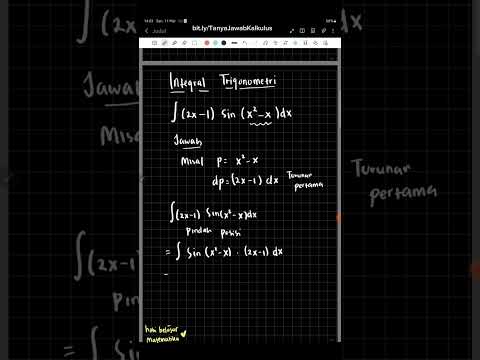 bit.ly/TanyaJawabKalkulus
Judul
Integral Trigonometri
∫(2x-1) sin (x²-x) dx
Jawab
Misal p = x²-x
dp = (2x-1) dx Turunan pertama
∫(2x-1) sin(x²-x)dx
pindah posisi
= ∫ sin (x²-x) · (2x-1) dx
hobi belajar
matematika